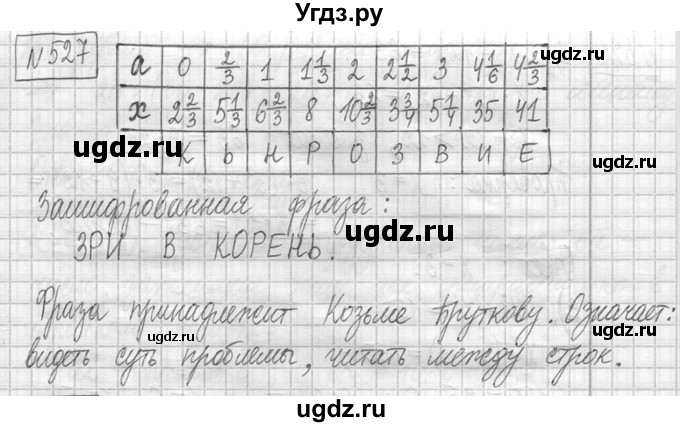 Угдз.ру
№527
а 0 2/3 1 1 1/3 2 2 1/2 3 4 1/6 4 2/3
х 2 2/3 5 1/3 6 2/3 8 10 2/3 3 3/4 5 1/4 35 41
К Ь Н Р О З В И Е
Зашифрованная фраза:
ugdz.ru
ugdz.ru
ugdz.ru
ЗРИ В КОРЕНЬ.
Фраза принадлежит Козьме Пруткову. Означает:
видеть суть проблемы, читать между строк.
ugdz.ru
ugdz.ru
ugdz.ru
ugdz.ru